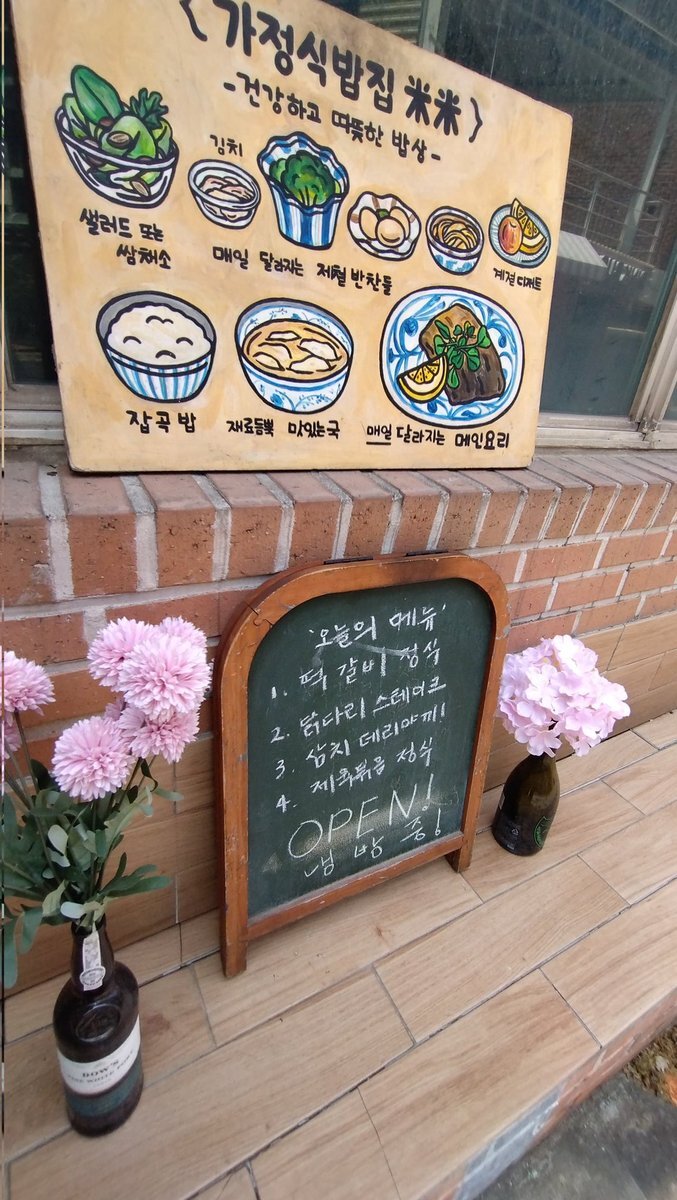 〈가정식밥집 米米〉
-건강하고 따뜻한 밥상-
김치
샐러드 또는
쌈채소
매일 달라지는 제철 반찬들
계절 디저트
잡곡밥
재료듬뿍 맛있는국
매일 달라지는 메인요리
'오늘의 메뉴'
1. 떡갈비 정식
2. 닭다리 스테이크
3. 삼치 데리야끼
4. 제육볶음 정식
OPEN!
냉방 중!
DOW'S